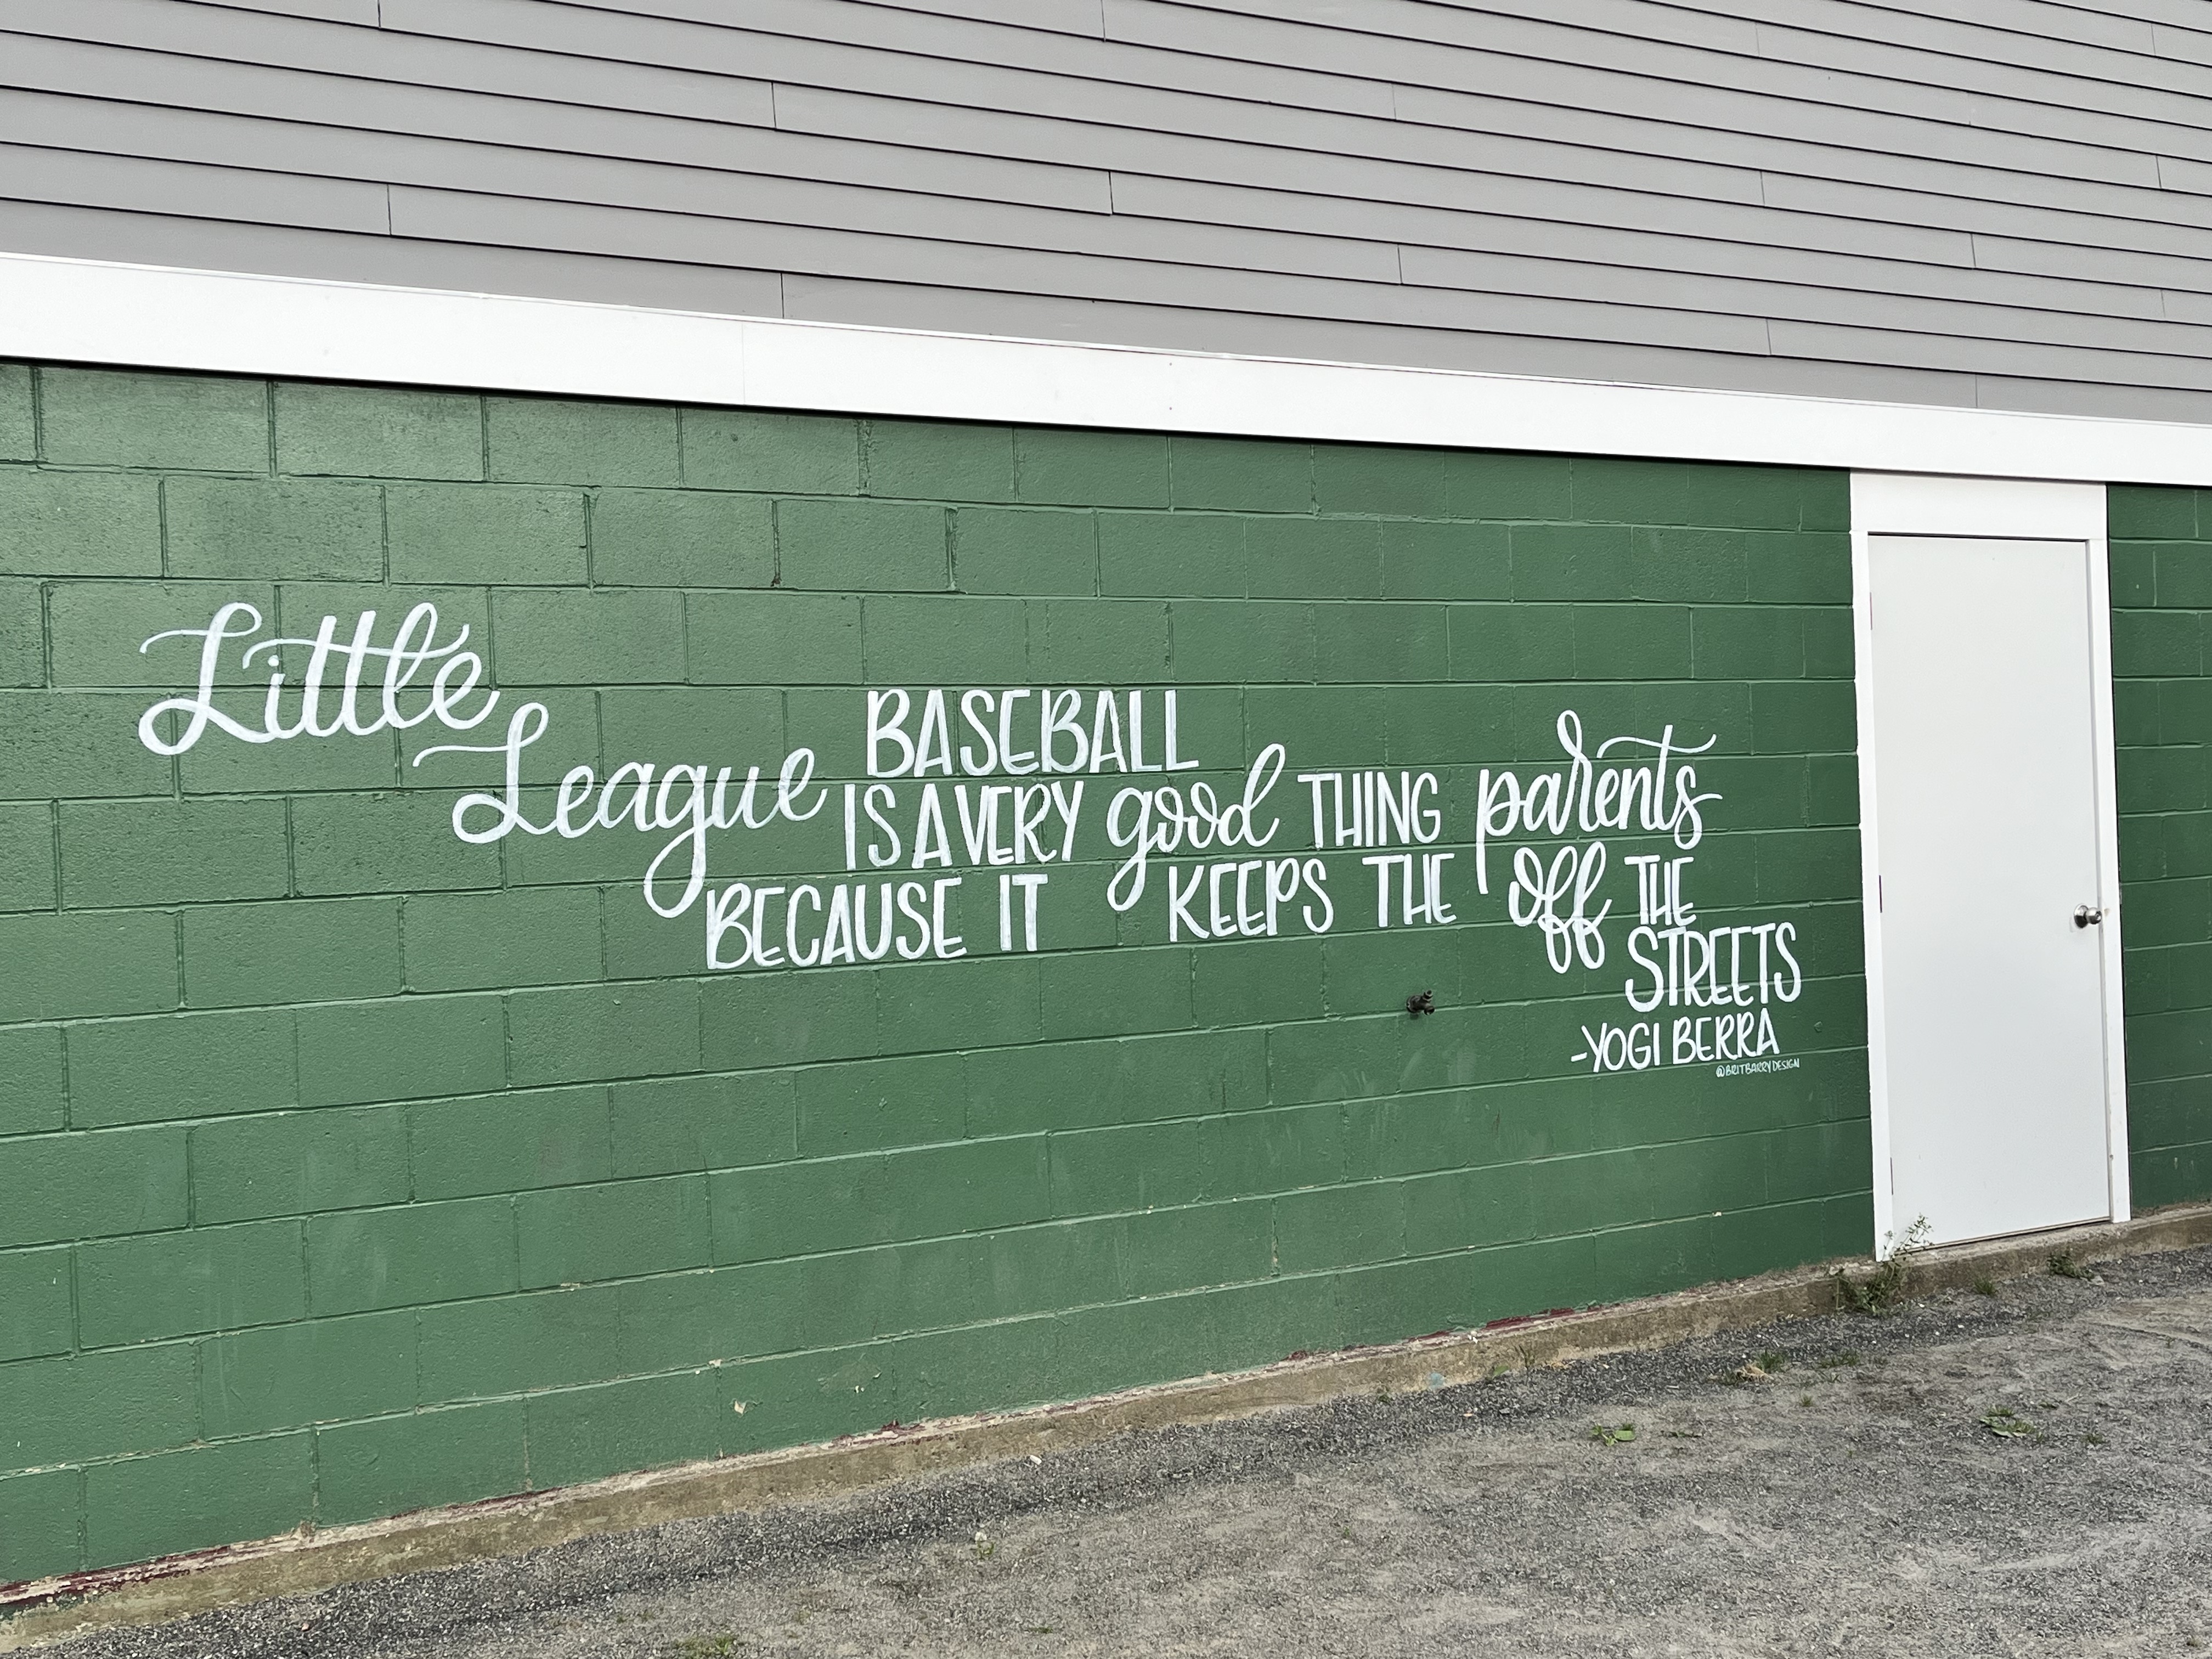 Little
League BASEBALL
IS A VERY good THING
BECAUSE IT KEEPS THE parents
off THE
STREETS
-YOGI BERRA
@BRITBARRYDESIGN